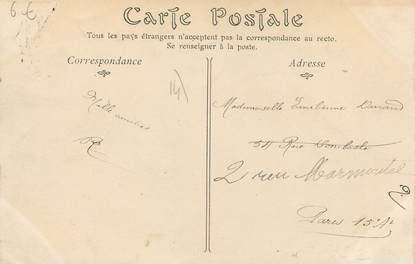 6 €
Carte Postale
Tous les pays étrangers n'acceptent pas la correspondance au recto.
Se renseigner à la poste.
Correspondance
Adresse
Mille amitiés
R
14)
Mademoiselle Emilienne Durand
54 Rue
2 rue Marmontel
Paris 15e